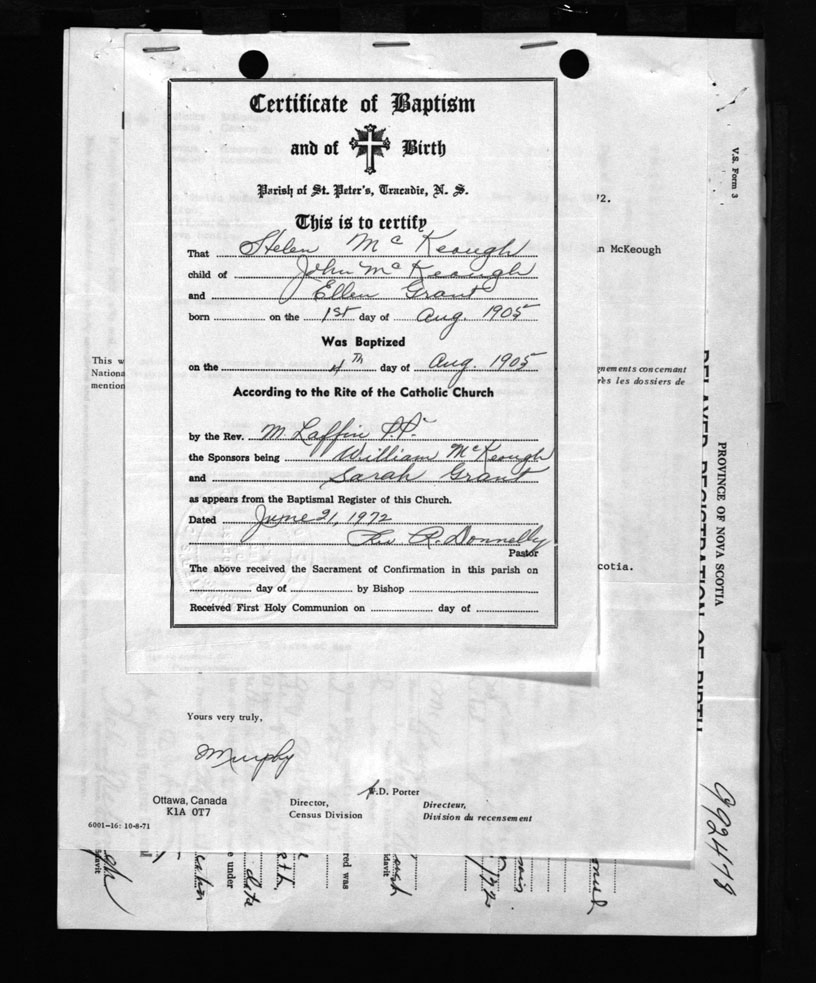 Certificate of Baptism
and of Birth
Parish of St. Peter's, Tracadie, N. S.
This is to certify
That Helen McKeough
child of John McKeough
and Ellen Grant
born on the 1st day of Aug. 1905
Was Baptized
on the 4th day of Aug. 1905
According to the Rite of the Catholic Church
by the Rev. M. Laffin P.P.
the Sponsors being William McKeough
and Sarah Grant
as appears from the Baptismal Register of this Church.
Dated June 21, 1972
R. Donnelly
Pastor
The above received the Sacrament of Confirmation in this parish on
day of by Bishop
Received First Holy Communion on day of
V.S. Form 3
72.
n McKeough
This w
Nationa
mention
gnements concernant
res les dossiers de
cotia.
PROVINCE OF NOVA SCOTIA
DELAYED REGISTRATION OF BIRTH
Yours very truly,
Murphy
W.D. Porter
Ottawa, Canada
K1A 0T7
Director,
Census Division
Directeur,
Division du recensement
6001-16: 10-8-71
9924178
idavit
e under
date
red was
idavit